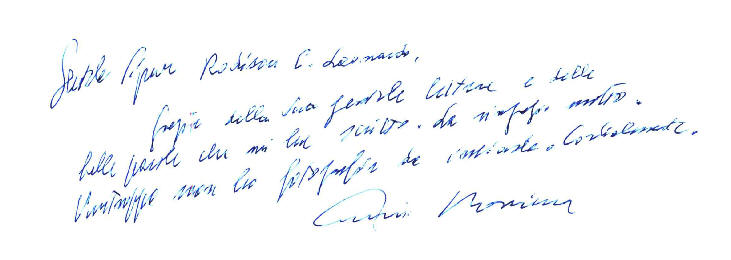 Gentile Signor Rodison C. Leonardo,
grazie della Sua gentile lettera e delle
belle parole che mi ha scritto. La ringrazio molto.
Purtroppo non ho fotografie da inviarle. Cordialmente.